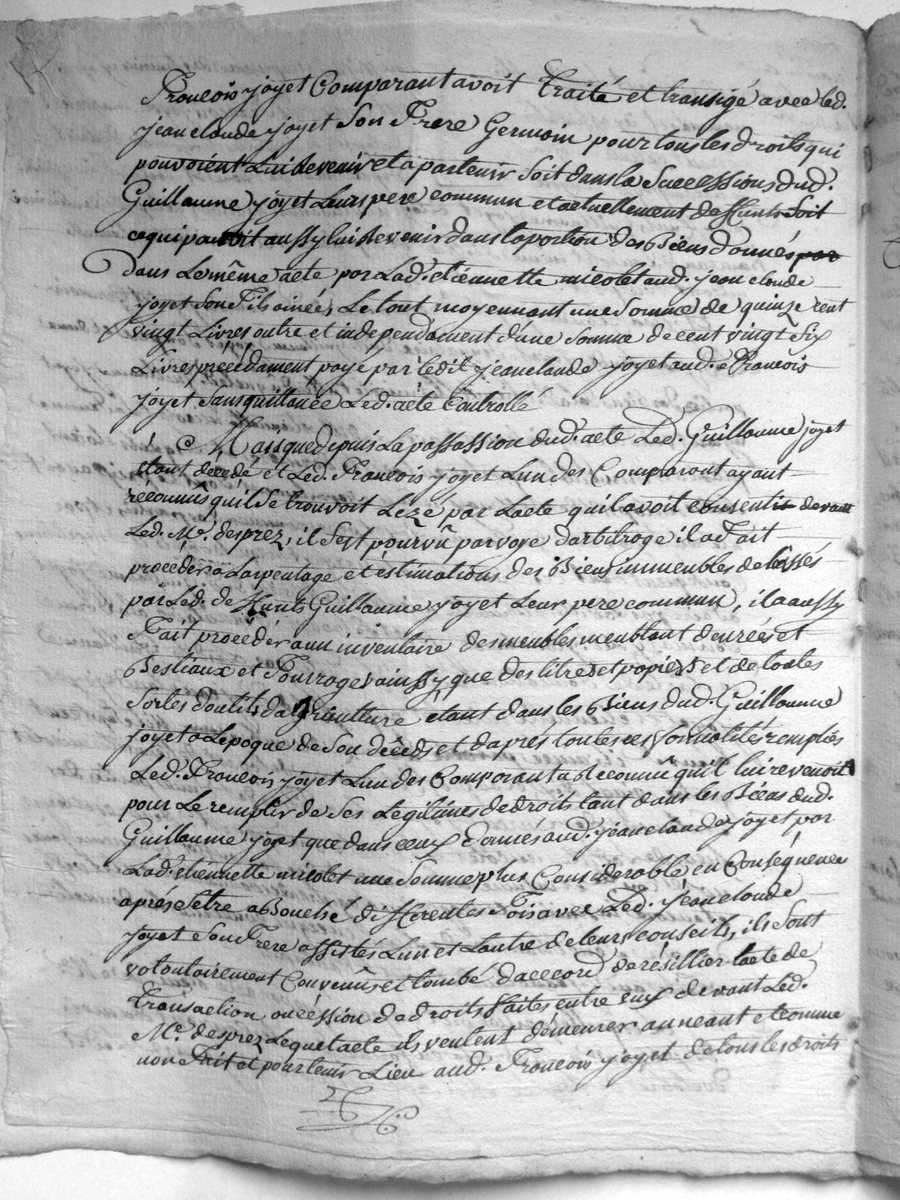 François joyet Comparant avoit traité et transigé avec led.
jean claude joyet son Frere Germain pour tous les droits qui
pouvoient Lui devenir et apartenir soit dans la Successions dud.
Guillaume joyet Leurs pere commun et actuellement deffunts Soit
ce qui pouvoit aussy lui devenir dans la portion des Biens donnés par
dans Le même acte par Lad. etiennette nicolet aud. jean claude
joyet Son Fils ainée, Le tout moyennant une Somme de quinze cent
vingt Livres outre et independament d'une somme de cent vingt Six
Livres précédament payé par ledit jean claude joyet aud. François
joyet Sans quittance Led. acte Controllé
Mais que depuis La passassion dud. acte Led. Guillaume joyet
étant décédé et Led. François joyet Lun des Comparant ayant
réconnûs qu'il Se trouvoit Lezé par Lacte qu'il avoit consentit devant
Led. Me. desprez, il s'est pourvû par voye d'arbitrage il a Fait
procéder a Larpentage et éstimations des Biens immeubles délaissés
par Led. deffunts Guillaume joyet Leur pere commun, il a aussy
Fait procéder a un inventaire des meubles meublant denrées et
Bestiaux et Fourrages ainssy que des titres et papiers et de toutes
Sortes d'outils d'agriculture etant dans les Biens dud. Guillaume
joyet a Lepoque de Son décèds et d'après toutes ces Formalités remplies
Led. François joyet Lun des Comparant a réconnû qu'il lui revenoit
pour Le remplir de Ses Légitimes de droits tant dans les Biens dud.
Guillaume joyet que dans ceux donnés aud. jean claude joyet par
Lad. etiennette nicolet une Somme plus Considerable en Conséquence
après s'etre abouché differentes Fois avec Led. jean claude
joyet Son Frere assistés Lun et Lautre de leurs conseils, ils Sont
volontairement Convenûs et tombé d'accord de résillier lacte de
transaction ou céssion de droits Faites entre eux devant Led.
Me. desprez Lequel acte ils veulent démeurer au neant et comme
non Fait et pour tenir Lieu aud. François joyet de tous les droits